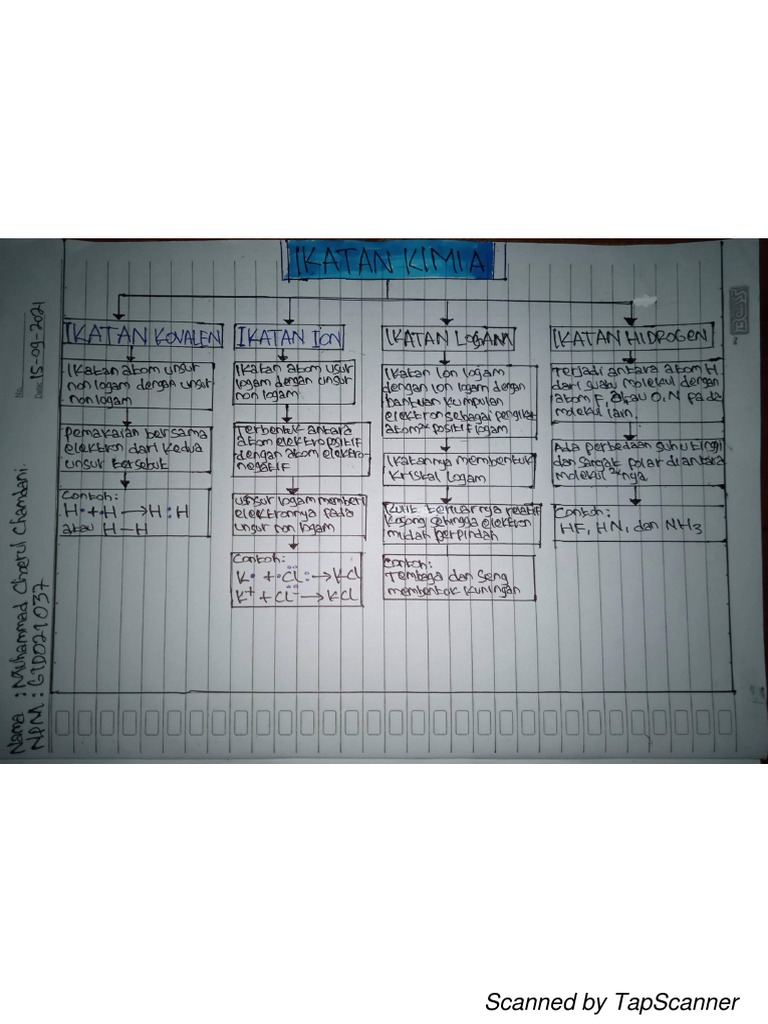 No.
Date: 15-09-2021
Nama : Muhammad Choerul Chamdani.
NPM : G1D021037
IKATAN KIMIA
IKATAN KOVALEN
Ikatan atom unsur
non logam dengan unsur
non logam
Pemakaian bersama
elektron dari kedua
unsur tersebut
Contoh:
H• + •H → H : H
atau H – H
IKATAN ION
Ikatan atom usur
logam dengan unsur
non logam
Terbentuk antara
atom elektropositif
dengan atom elektro-
negatif
unsur logam memberi
elektronnya pada
unsur non logam
Contoh:
K• + •Cl: → KCl
K⁺ + Cl⁻ → KCl
IKATAN LOGAM
Ikatan Ion logam
dengan Ion logam dengan
bantuan kumpulan
elektron sebagai pengikat
atom²ˣ positif logam
Ikatannya membentuk
kristal logam
Kulit terluarnya relatif
kosong sehingga elektron
mudah berpindah
Contoh:
Tembaga dan Seng
membentuk kuningan
IKATAN HIDROGEN
Terjadi antara atom H
dari suatu molekul dengan
atom F, atau O, N pada
molekul lain.
Ada perbedaan suhu tinggi
dan sangat polar diantara
molekul²ˣnya
Contoh:
HF, HN, dan NH3
Scanned by TapScanner